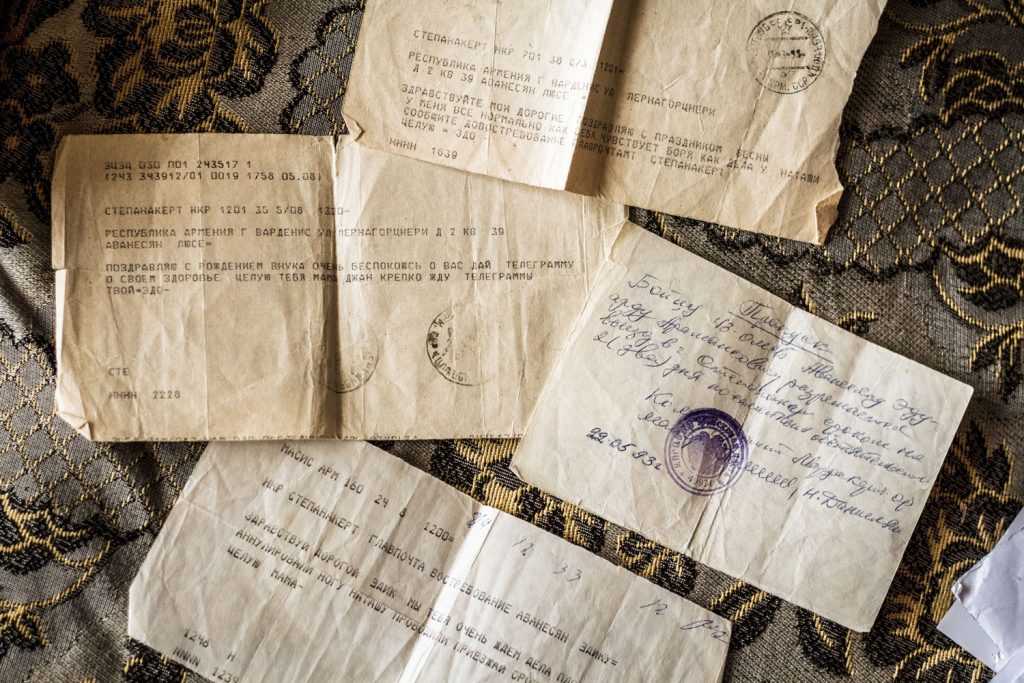 СТЕПАНАКЕРТ НКР 701 38 6/3 1201=
РЕСПУБЛИКА АРМЕНИЯ Г ВАРДЕНИС УД ЛЕРНАГОРЦНЕРИ
Д 2 КВ 39 АВАНЕСЯН ЛЮСЕ=
ЗДРАВСТВУЙТЕ МОИ ДОРОГИЕ ПОЗДРАВЛЯЮ С ПРАЗДНИКОМ ВЕСНЫ
У МЕНЯ ВСЕ НОРМАЛЬНО КАК СЕБЯ ЧУВСТВУЕТ БОРЯ КАК ДЕЛА У НАТАШИ
СООБЩИТЕ ДОВОСТРЕБОВАНИЕ ГЛАВПОЧТАМТ СТЕПАНАКЕРТ
ЦЕЛУЮ = ЭДО-
НННН 1639
ЗЦЗЦ ОЗО П01 243517 1
(243 343912/01 0019 1758 05.08)
СТЕПАНАКЕРТ НКР 1201 35 5/08 1320=
РЕСПУБЛИКА АРМЕНИЯ Г ВАРДЕНИС УД ЛЕРНАГОРЦНЕРИ Д 2 КВ 39
АВАНЕСЯН ЛЮСЕ=
ПОЗДРАВЛЯЮ С РОЖДЕНИЕМ ВНУКА ОЧЕНЬ БЕСПОКОЮСЬ О ВАС ДАЙ ТЕЛЕГРАММУ
О СВОЕМ ЗДОРОВЬЕ ЦЕЛУЮ ТЕБЯ МАМА ДЖАН КРЕПКО ЖДУ ТЕЛЕГРАММЫ
ТВОЙ=ЭДО-
СТЕ
НННН 2228
Пропуск
Бойцу Аванесяну Эду-
арду разрешается
выезд в г. сроком на
2 (два) дня по
22.05.93г.
МАСИС АРМ 160 24 8 1200=
НКР СТЕПАНАКЕРТ ГЛАВПОЧТА ВОСТРЕБОВАНИЕ АВАНЕСЯН ЭДИКУ=
ЗДРАВСТВУЙ ДОРОГОЙ ЭДИК МЫ ТЕБЯ ОЧЕНЬ ЖДЕМ ДЕЛА
АННУЛИРОВАЛИ НОГУ НАТАШУ ПРОВОДИЛИ ПРИЕЗЖАЙ
ЦЕЛУЮ МАМА-
1246 Н
NNNN 1239